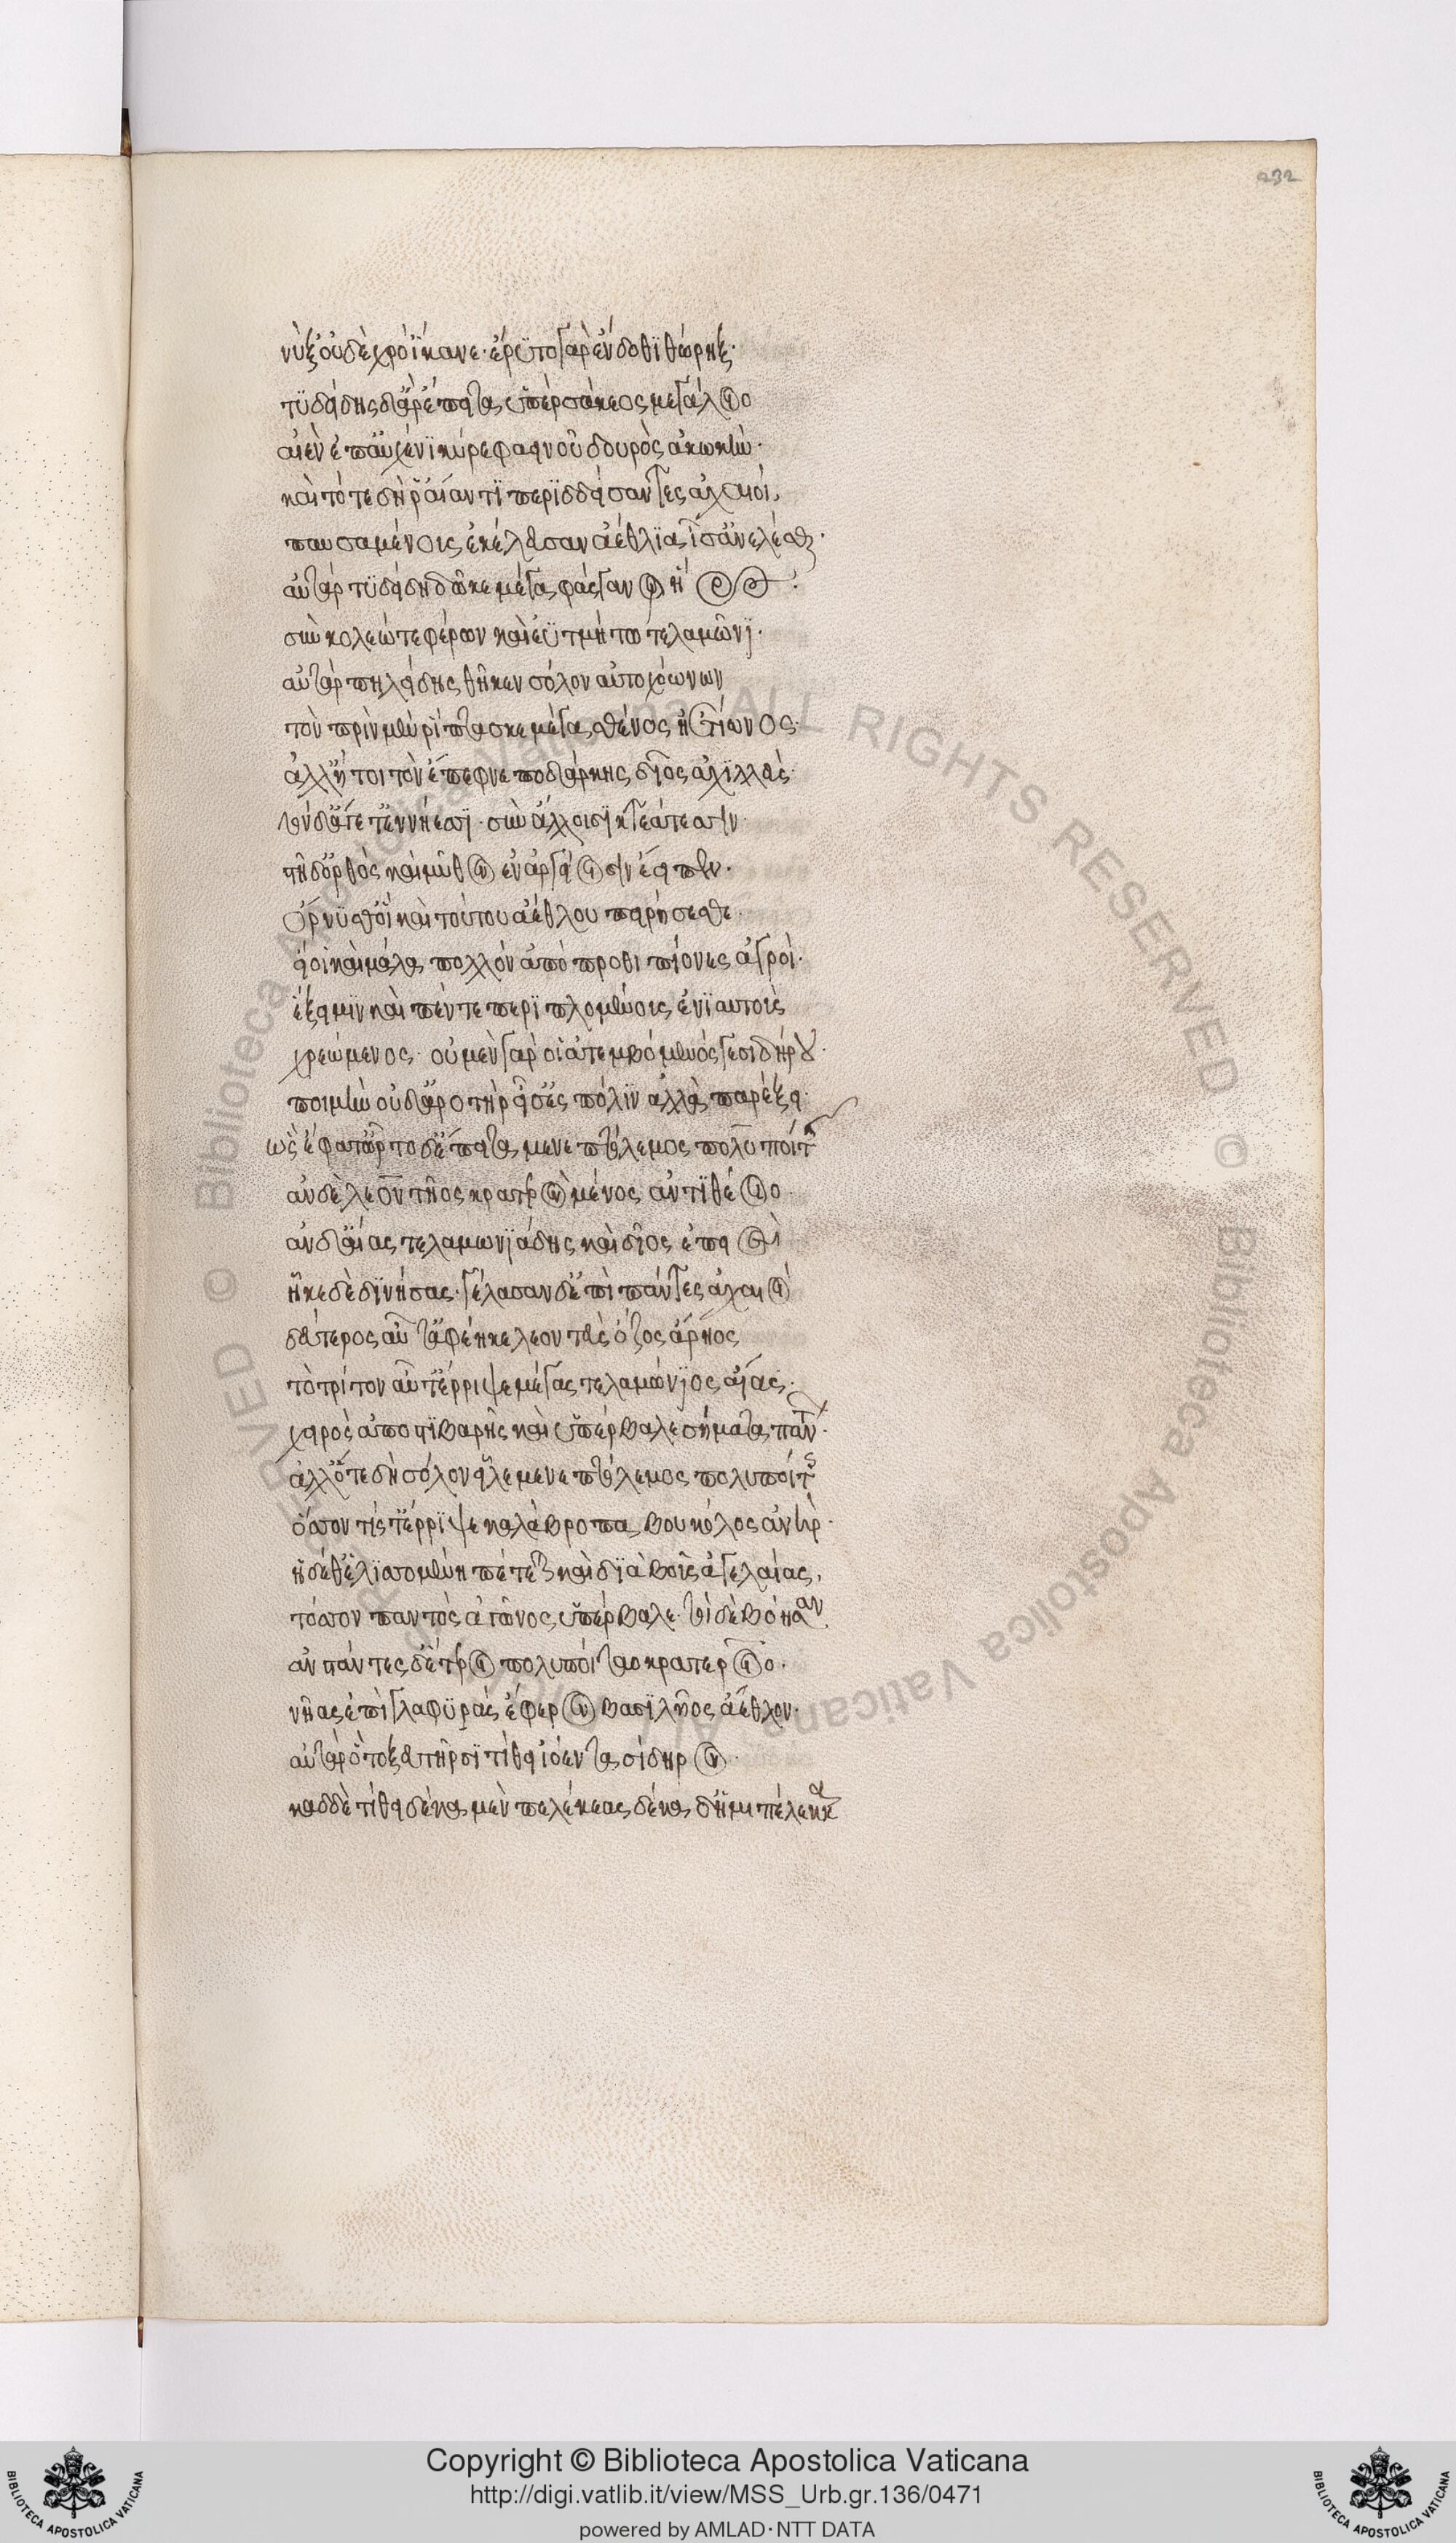 232
νὺξ οὐδὲ χρόϊκανε· ἔρϋτο γὰρ ἔνδοθϊ θώρηξ·
τϋδείδης δἂρ ἔπειτα ὑπὲρ σάκεος μεγάλοιο
αἰὲν ἐπαὐχένϊ κῦρε φαεινοῦ δουρὸς ἀκωκῆ·
καὶ τότε δή ῥ' αἴαντϊ περϊδδείσαντες ἀχαιοί,
παυσαμένοις ἐκέλευσαν ἀέθλϊα ἶσ' ἀνελέσθαι·
αὐτὰρ τϋδείδη δῶκε μέγα φάσγανον ἥρως·
σὺν κολεῶ τε φέρων καὶ ἐϋτμήτω τελαμῶνϊ·
αὐτὰρ πηλείδης θῆκεν σόλον αὐτοχόωνον
τὸν πρὶν μὲν ῥίπτασκε μέγα σθένος ἠετίωνος·
ἀλλ' ἤτοι τὸν ἔπεφνε ποδάρκης δῖος ἀχιλλεύς·
τὸν δ' ἄγετ' ἐν νήεσϊ· σὺν ἄλλοισϊ κτεάτεσσιν·
στῆ δ' ὀρθὸς καὶ μῦθον ἐν ἀργείοισιν ἔειπεν·
ὄρνϋσθ' οἳ καὶ τούτου ἀέθλου πειρήσεσθε·
εἴ οἱ καὶ μάλα πολλὸν ἀπόπροθι πίονες ἀγροί·
ἕξει μϊν καὶ πέντε περϊπλομένους ἐνϊαυτοὺς
χρεώμενος· οὐ μὲν γάρ οἱ ἀτεμβόμενός γε σιδήρου·
ποιμὴν οὐδ' ἀροτὴρ εἶσ' ἐς πόλϊν ἀλλὰ παρέξει·
ὣς ἔφατ' ὦρτο δ' ἔπειτα μενεπτόλεμος πολυποίτης
ἂν δὲ λεοντῆος κρατερὸν μένος ἀντϊθέοιο·
ἂν δ' αἴας τελαμωνϊάδης καὶ δῖος ἐπειός
ἧκε δὲ δϊνήσας· γέλασαν δ' ἐπὶ πάντες ἀχαιοί
δεύτερος αὖτ' ἀφέηκε λεοντεὺς ὄζος ἄρηος
τὸ τρίτον αὖτ' ἔρριψε μέγας τελαμώνϊος αἴας·
χειρὸς ἄπο στϊβαρῆς καὶ ὑπέρβαλε σήματα πάντων·
ἀλλ' ὅτε δὴ σόλον εἷλε μενεπτόλεμος πολυποίτης
ὅσσον τίς τ' ἔρρϊψε καλάβροπα βουκόλος ἀνήρ·
ἡ δέ θ' ἑλϊσσομένη πέτεται διὰ βοῦς ἀγελαίας,
τόσσον παντὸς ἀγῶνος ὑπέρβαλε· τοὶ δὲ βόησαν
ἀνστάντες δ' ἕταροι πολυποίταο κρατεροῖο·
νῆας ἐπὶ γλαφϋρὰς ἔφερον βασϊλῆος ἄεθλον·
αὐτὰρ ὃ τοξευτῆρσϊ τίθει ἰόεντα σίδηρον·
καδδὲ τίθει δέκα μὲν πελέκεας δέκα δ' ἡμιπέλεκκα
Copyright © Biblioteca Apostolica Vaticana
http://digi.vatlib.it/view/MSS_Urb.gr.136/0471
powered by AMLAD·NTT DATA